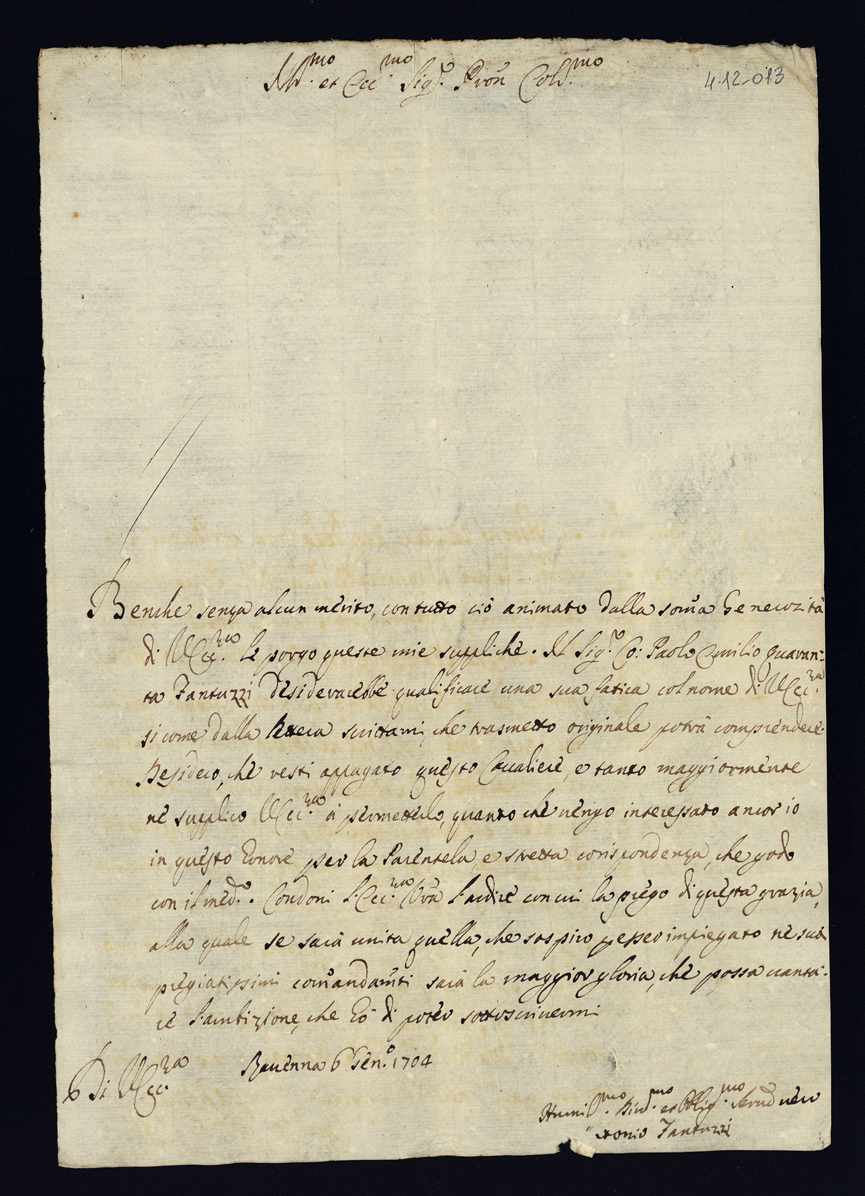 Ill.mo et Ecc.mo Sig.r Pron Col.mo
4-12-013
Benche senza alcun merito, con tutto ciò animato dalla som̃a Generozità
di V Ecc.za le porgo queste mie suppliche. Il Sig.r Co: Paolo Emilio Quaran:
ta Fantuzzi desiderarebbe qualificare una sua fatica col nome di V Ecc.za
si come dalla lettera scrittami, che trasmetto originale potrà comprendere.
Desidero, che resti appagato questo Cavaliere, e tanto maggiormente
ne supplico V Ecc.za à permetterlo, quanto che vengo interessato ancor io
in questo honore per la Parentela e stretta corispondenza, che godo
con il med.o. Condoni l'Ecc.za Vrã l'ardire con cui la priego di questa grazia,
alla quale se sarà unita quella, che sospiro d'esser impiegato ne suoi
pregiatissimi com̃andam̃ti sarà la maggior gloria, che possa vanta:
re l'ambizione, che hò di poter sottoscrivermi
Di V Ecc.za
Ravenna 6 Gen.o 1704
Humil.mo Div.mo et Oblig.mo Serud vero
Antonio Fantuzzi